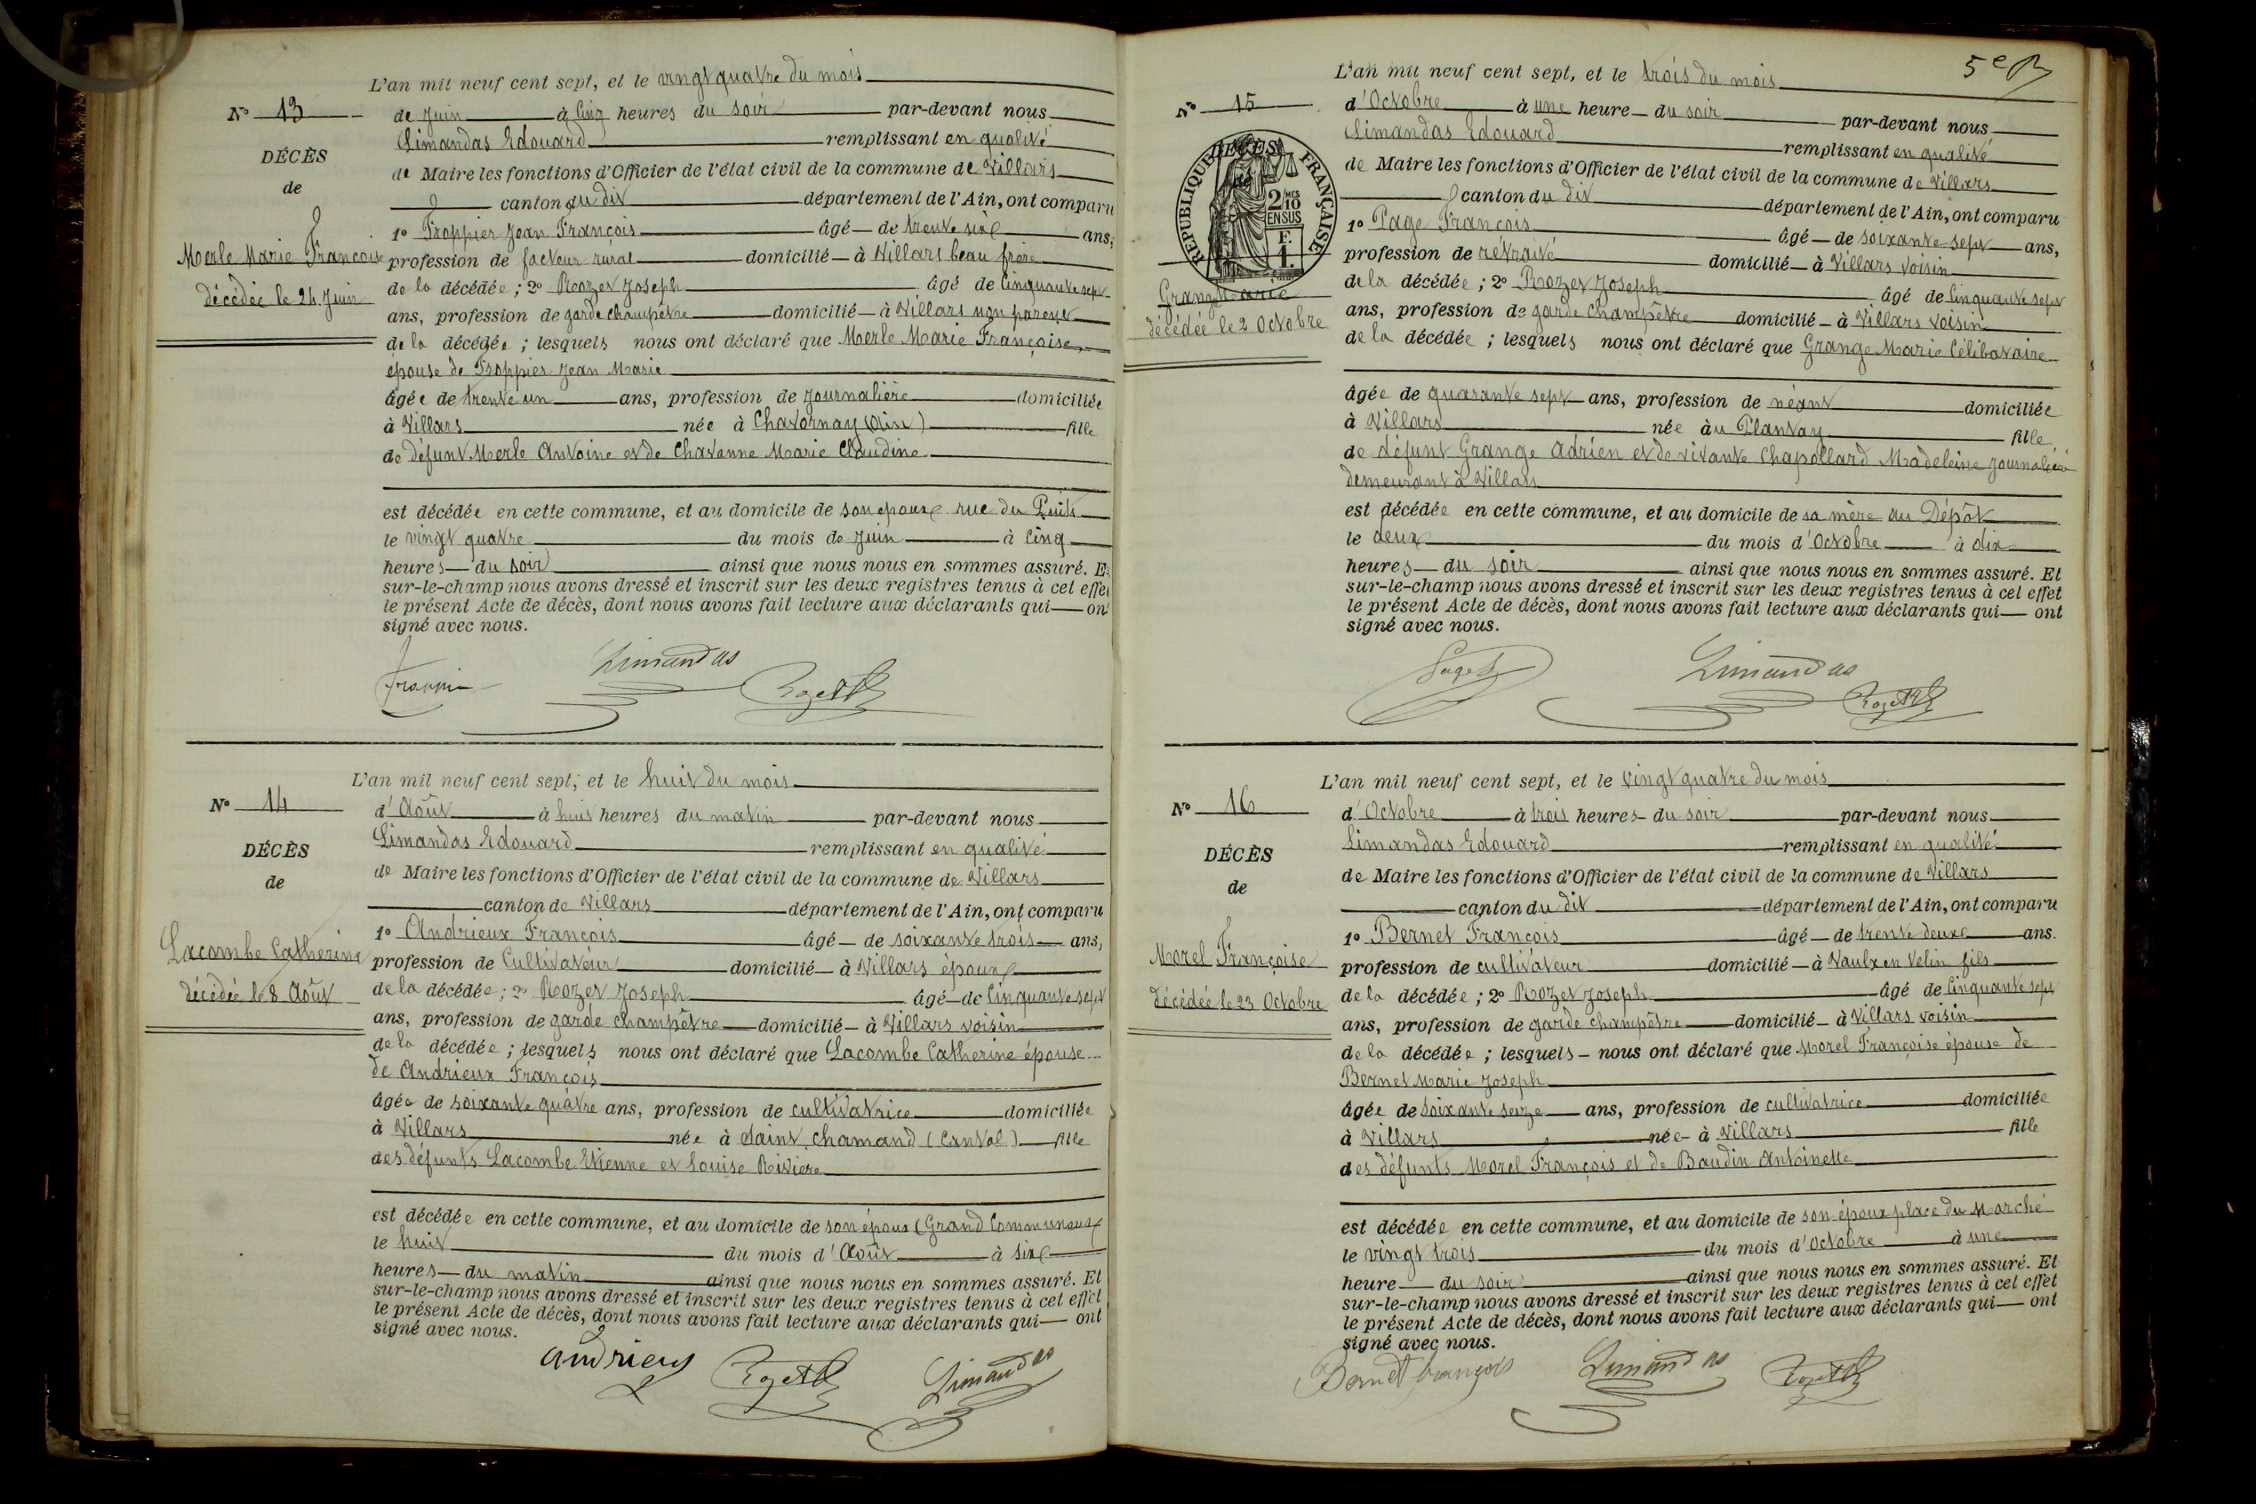 L'an mil neuf cent sept, et le vingt quatre du mois
N° 13
de Juin à cinq heures du soir par-devant nous
Limandas Edouard remplissant en qualité
DÉCÈS
de Maire les fonctions d'Officier de l'état civil de la commune de Villars
de
canton du dit département de l'Ain, ont comparu
1° Froppier Jean François âgé de trente six ans,
Merle Marie Françoise
profession de facteur rural domicilié à Villars beau frère
décédée le 24 Juin
de la décédée ; 2° Rozet Joseph âgé de cinquante sept
ans, profession de garde champêtre domicilié à Villars non parent
de la décédée ; lesquels nous ont déclaré que Merle Marie Françoise,
épouse de Froppier Jean Marie
âgée de trente un ans, profession de journalière domiciliée
à Villars née à Chavornay (Ain) fille
de défunt Merle Antoine et de Chavanne Marie Claudine
est décédée en cette commune, et au domicile de son époux rue du Puits
le vingt quatre du mois de Juin à cinq
heures du soir ainsi que nous nous en sommes assuré. Et
sur-le-champ nous avons dressé et inscrit sur les deux registres tenus à cet effet
le présent Acte de décès, dont nous avons fait lecture aux déclarants qui ont
signé avec nous.
Limandas
Rozet
L'an mil neuf cent sept, et le huit du mois
N° 14
d'Août à huit heures du matin par-devant nous
Limandas Edouard remplissant en qualité
DÉCÈS
de Maire les fonctions d'Officier de l'état civil de la commune de Villars
de
canton de Villars département de l'Ain, ont comparu
1° Andrieux François âgé de soixante trois ans,
Lacombe Catherine
profession de Cultivateur domicilié à Villars époux
décédée le 8 Août
de la décédée ; 2° Rozet Joseph âgé de cinquante sept
ans, profession de garde champêtre domicilié à Villars voisin
de la décédée ; lesquels nous ont déclaré que Lacombe Catherine épouse
de Andrieux François
âgée de soixante quatre ans, profession de cultivatrice domiciliée
à Villars née à Saint Chamand (Cantal) fille
des défunts Lacombe Etienne et Louise Rivière
est décédée en cette commune, et au domicile de son époux (Grand Communaux
le huit du mois d'Août à six
heures du matin ainsi que nous nous en sommes assuré. Et
sur-le-champ nous avons dressé et inscrit sur les deux registres tenus à cet effet
le présent Acte de décès, dont nous avons fait lecture aux déclarants qui ont
signé avec nous.
Andrieux
Rozet
Limandas
5e
L'an mil neuf cent sept, et le trois du mois
N° 15
d'Octobre à une heure du soir par-devant nous
Limandas Edouard remplissant en qualité
DÉCÈS
de
RÉPUBLIQUE FRANÇAISE
2/10 EN SUS
de Maire les fonctions d'Officier de l'état civil de la commune de Villars
canton du dit département de l'Ain, ont comparu
1° Page François âgé de soixante sept ans,
profession de retraité domicilié à Villars voisin
Grange Marie
de la décédée ; 2° Rozet Joseph âgé de cinquante sept
décédée le 2 Octobre
ans, profession de garde champêtre domicilié à Villars voisin
de la décédée ; lesquels nous ont déclaré que Grange Marie Célibataire
âgée de quarante sept ans, profession de néant domiciliée
à Villars née au Plantay fille
de défunt Grange Adrien et de vivante Chapollard Madeleine journalière
demeurant à Villars
est décédée en cette commune, et au domicile de sa mère au Dépôt
le deux du mois d'Octobre à dix
heures du soir ainsi que nous nous en sommes assuré. Et
sur-le-champ nous avons dressé et inscrit sur les deux registres tenus à cet effet
le présent Acte de décès, dont nous avons fait lecture aux déclarants qui ont
signé avec nous.
Page
Limandas
Rozet
L'an mil neuf cent sept, et le vingt quatre du mois
N° 16
d'Octobre à trois heures du soir par-devant nous
Limandas Edouard remplissant en qualité
DÉCÈS
de Maire les fonctions d'Officier de l'état civil de la commune de Villars
de
canton du dit département de l'Ain, ont comparu
1° Bernet François âgé de trente deux ans.
Morel Françoise
profession de cultivateur domicilié à Vaulx en Velin fils
décédée le 23 Octobre
de la décédée ; 2° Rozet Joseph âgé de cinquante sept
ans, profession de garde champêtre domicilié à Villars voisin
de la décédée ; lesquels nous ont déclaré que Morel Françoise épouse de
Bernet Marie Joseph
âgée de soixante seize ans, profession de cultivatrice domiciliée
à Villars née à Villars fille
des défunts Morel François et de Baudin Antoinette
est décédée en cette commune, et au domicile de son époux place du Marché
le vingt trois du mois d'Octobre à une
heure du soir ainsi que nous nous en sommes assuré. Et
sur-le-champ nous avons dressé et inscrit sur les deux registres tenus à cet effet
le présent Acte de décès, dont nous avons fait lecture aux déclarants qui ont
signé avec nous.
Bernet françois
Limandas
Rozet